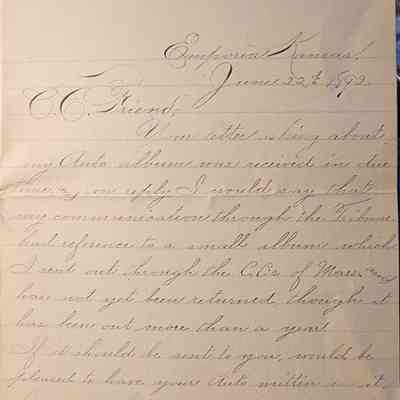 Emporia Kansas,
June 22nd 1892.
C.C. Friend;
Your letter asking about
my Auto album was received in due
time, & in reply I would say that
my communication through the Tribune
had reference to a small album which
I sent out through the C.C.s of Mass. and
has not yet been returned though it
has been out more than a year.
If it should be sent to you, would be
pleased to have your Auto written in it.